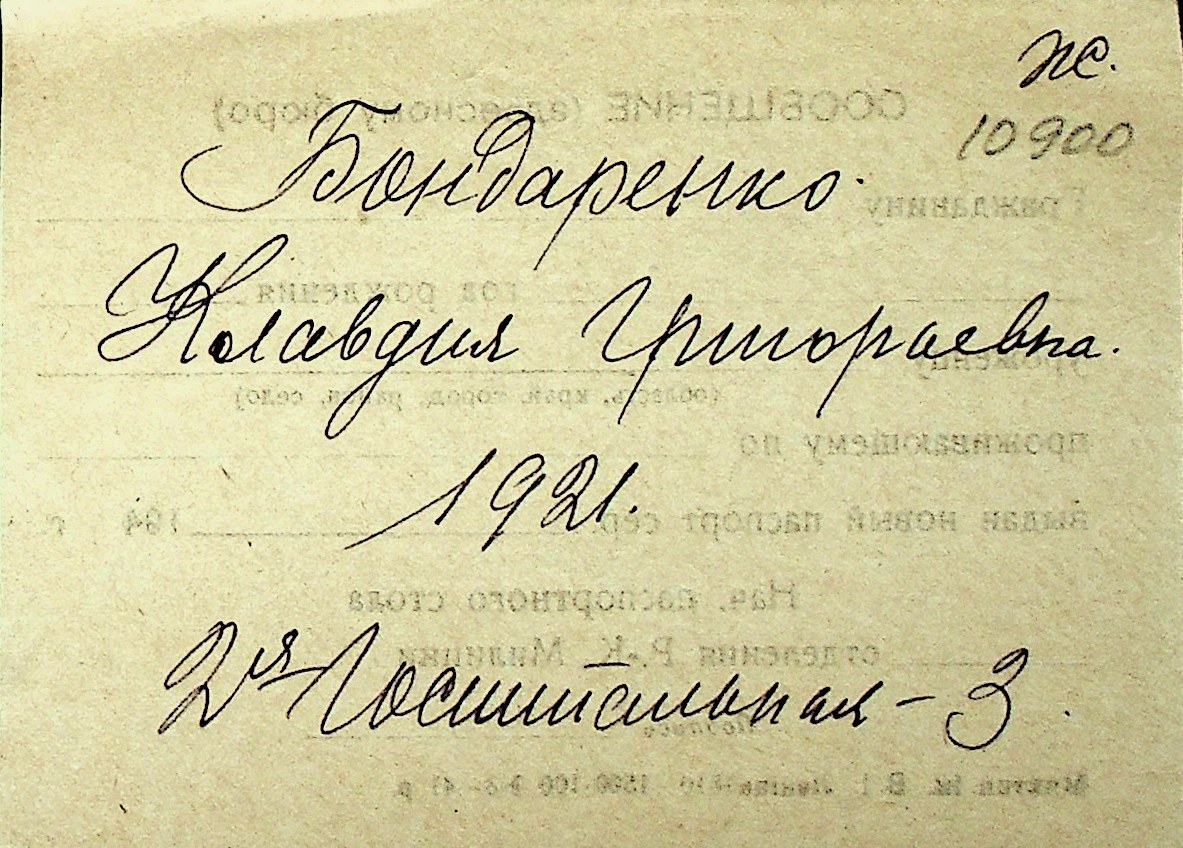 ж.
10900
Бондаренко.
Клавдия Григорьевна.
1921.
2я Госпитальная – 3.
СООБЩЕНИЕ (адресному бюро)
Гражданину
год рождения
уроженцу
(область, край, город, район, село)
проживающему по
выдан новый паспорт сер. 194 г.
Нач. паспортного стола
отделения Р.-К. Милиции
Подпись